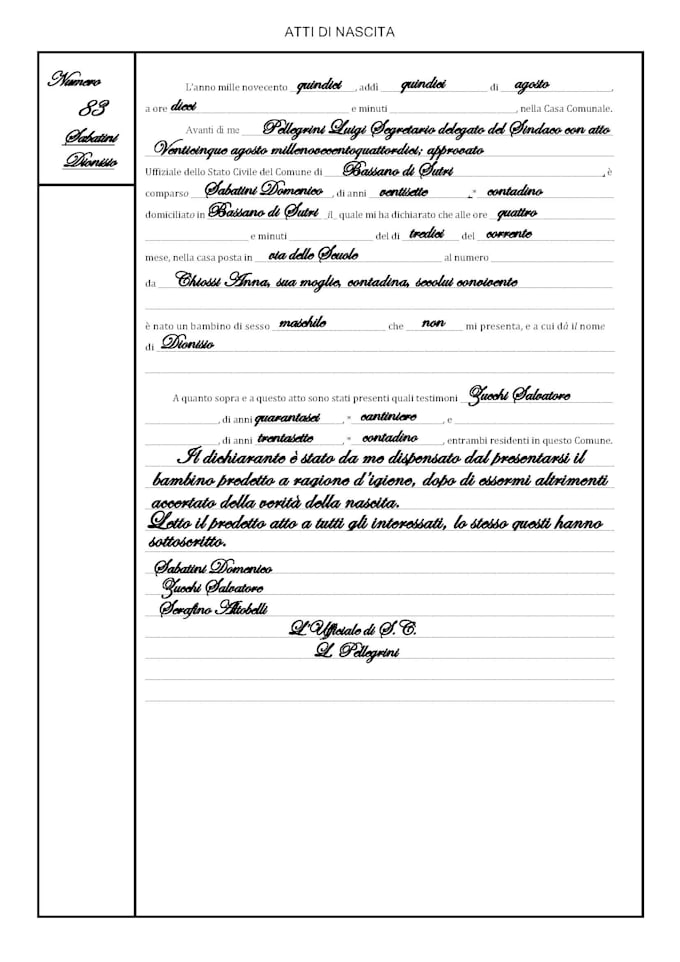 ATTI DI NASCITA
Numero
83
Sabatini
Dionisio
L'anno mille novecento quindici, addi quindici di agosto,
a ore dieci e minuti , nella Casa Comunale.
Avanti di me Pellegrini Luigi Segretario delegato del Sindaco con atto
Venticinque agosto millenovecentoquattordici; approvato
Uffiziale dello Stato Civile del Comune di Bassano di Sutri, è
comparso Sabatini Domenico, di anni ventisette, contadino
domiciliato in Bassano di Sutri il quale mi ha dichiarato che alle ore quattro
e minuti del di tredici del corrente
mese, nella casa posta in via delle Scuole al numero
da Chiossi Anna, sua moglie, contadina, secolui convivente
è nato un bambino di sesso maschile che non mi presenta, e a cui dá il nome
di Dionisio
A quanto sopra e a questo atto sono stati presenti quali testimoni Zucchi Salvatore
, di anni quarantasei, cantiniere, e
, di anni trentasette, contadino, entrambi residenti in questo Comune.
Il dichiarante è stato da me dispensato dal presentarsi il
bambino predetto a ragione d'igiene, dopo di essermi altrimenti
accertato della verità della nascita.
Letto il predetto atto a tutti gli interessati, lo stesso questi hanno
sottoscritto.
Sabatini Domenico
Zucchi Salvatore
Serafino Altobelli
L'Ufficiale di S. C.
L. Pellegrini